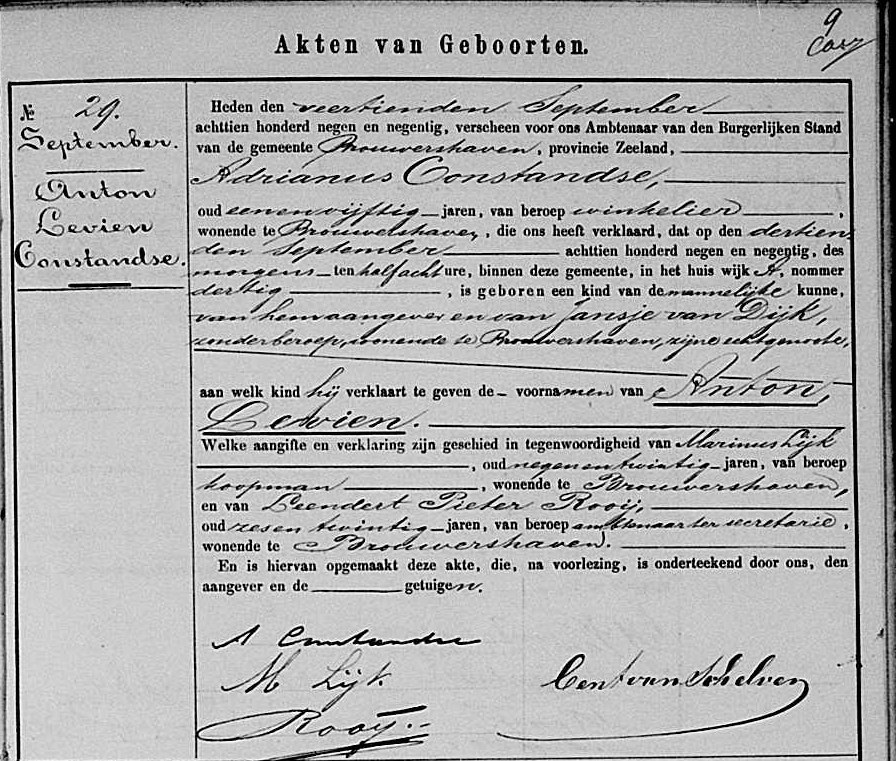 9
Akten van Geboorten.
№ 29.
September.
Anton
Levien
Constandse.
Heden den veertienden September
achttien honderd negen en negentig, verscheen voor ons Ambtenaar van den Burgerlijken Stand
van de gemeente Brouwershaven, provincie Zeeland,
Adrianus Constandse,
oud eenenvijftig jaren, van beroep winkelier,
wonende te Brouwershaven, die ons heeft verklaard, dat op den dertien
den September achttien honderd negen en negentig, des
morgens ten half acht ure, binnen deze gemeente, in het huis wijk A, nommer
dertig, is geboren een kind van de mannelijke kunne,
van hem aangever en van Jansje van Dijk,
zonder beroep, wonende te Brouwershaven, zijne echtgenoote,
aan welk kind hij verklaart te geven de voornamen van Anton,
Levien.
Welke aangifte en verklaring zijn geschied in tegenwoordigheid van Marinus Lijk
, oud negenentwintig jaren, van beroep
koopman, wonende te Brouwershaven,
en van Leendert Pieter Rooij,
oud zesentwintig jaren, van beroep ambtenaar ter secretarie,
wonende te Brouwershaven.
En is hiervan opgemaakt deze akte, die, na voorlezing, is onderteekend door ons, den
aangever en de getuigen.
A Constandse
M Lijk.
Cent van Schelven
Rooij.